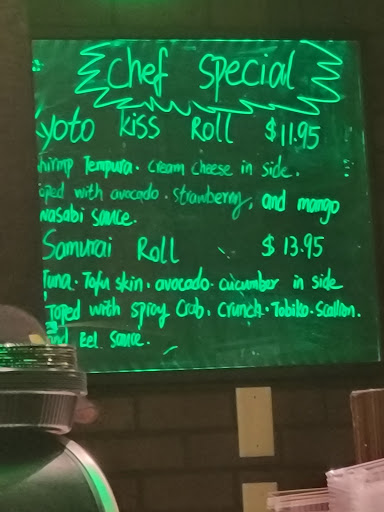 chef special
kyoto kiss Roll $11.95
shrimp Tempura. cream cheese in side.
oped with avocado. strawberry, and mango
wasabi sauce.
Samurai Roll $13.95
Tuna. Tofu skin. avocado. cucumber in side
Toped with spicy Crab, Crunch. Tobiko. Scallion.
and Eel Sauce.